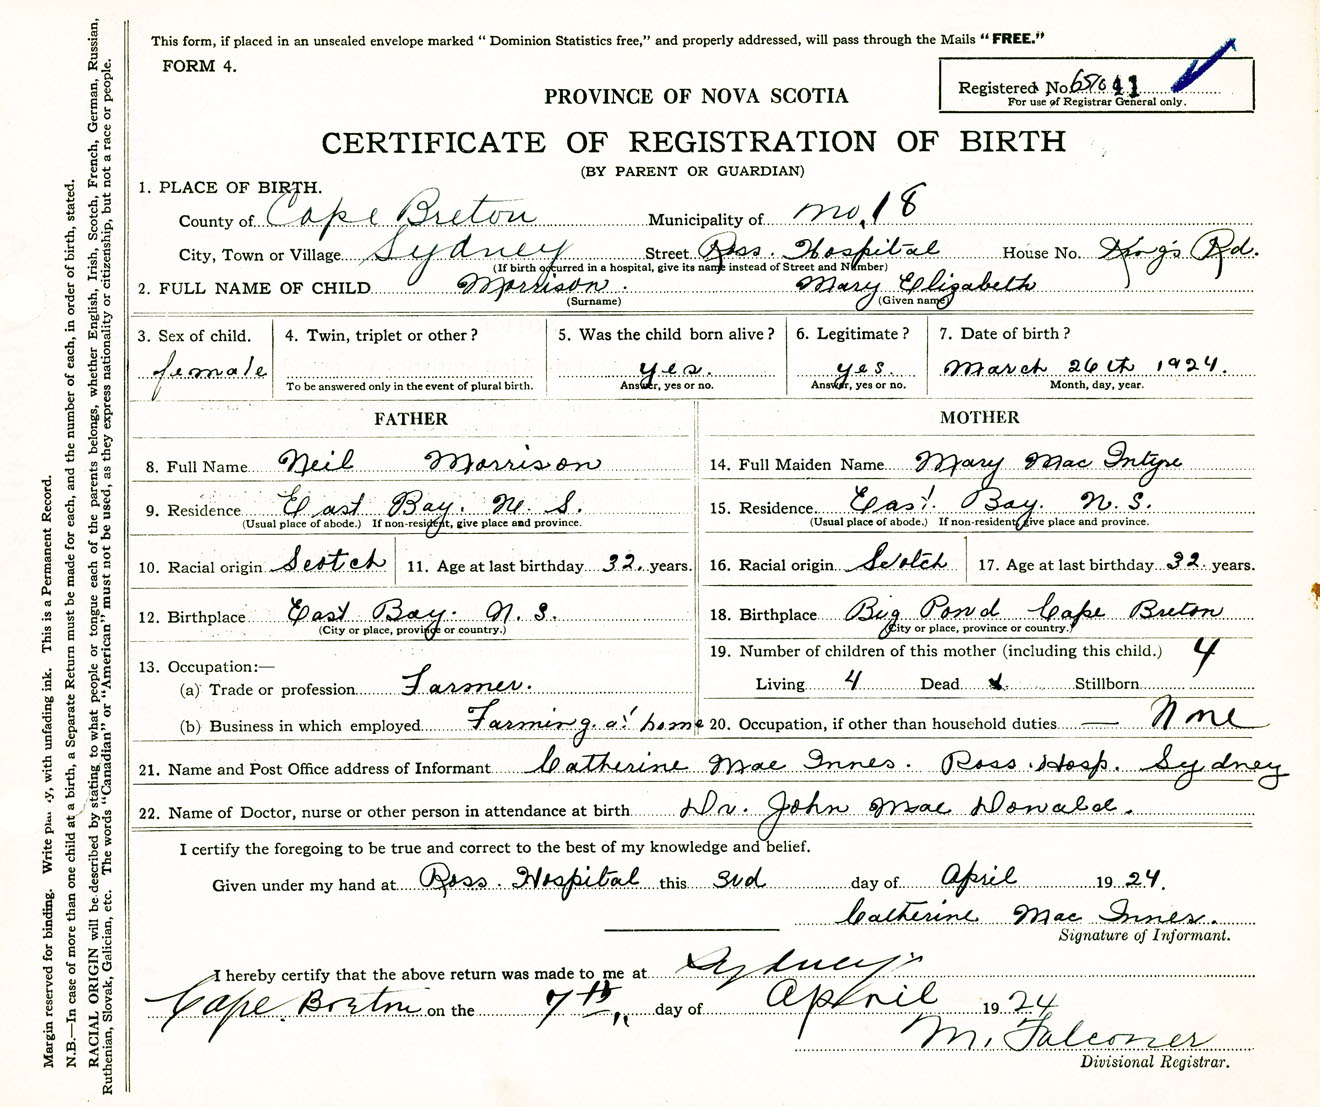 This form, if placed in an unsealed envelope marked “ Dominion Statistics free,” and properly addressed, will pass through the Mails “ FREE.”
FORM 4.
Registered No. 41
For use of Registrar General only.
PROVINCE OF NOVA SCOTIA
CERTIFICATE OF REGISTRATION OF BIRTH
(BY PARENT OR GUARDIAN)
1. PLACE OF BIRTH.
County of Cape Breton Municipality of No. 18
City, Town or Village Sydney Street Ross. Hospital House No. King's Rd.
(If birth occurred in a hospital, give its name instead of Street and Number)
2. FULL NAME OF CHILD Morrison. Mary Elizabeth
(Surname) (Given name)
3. Sex of child. 4. Twin, triplet or other ? 5. Was the child born alive ? 6. Legitimate ? 7. Date of birth ?
female yes. yes. March 26th 1924.
To be answered only in the event of plural birth. Answer, yes or no. Answer, yes or no. Month, day, year.
FATHER MOTHER
8. Full Name Neil Morrison 14. Full Maiden Name Mary Mac Intyre
9. Residence East Bay. N. S. 15. Residence East. Bay. N. S.
(Usual place of abode.) If non-resident, give place and province. (Usual place of abode.) If non-resident, give place and province.
10. Racial origin Scotch 11. Age at last birthday 32. years. 16. Racial origin Scotch 17. Age at last birthday 32. years.
12. Birthplace East Bay. N. S. 18. Birthplace Big Pond Cape Breton
(City or place, province or country.) (City or place, province or country.)
13. Occupation:— 19. Number of children of this mother (including this child.) 4
(a) Trade or profession Farmer. Living 4 Dead Stillborn
(b) Business in which employed Farming. at home 20. Occupation, if other than household duties — None
21. Name and Post Office address of Informant Catherine Mac Innes. Ross. Hosp. Sydney
22. Name of Doctor, nurse or other person in attendance at birth Dr. John Mac Donald.
I certify the foregoing to be true and correct to the best of my knowledge and belief.
Given under my hand at Ross. Hospital this 3rd day of April 1924.
Catherine Mac Innes.
Signature of Informant.
I hereby certify that the above return was made to me at Sydney
Cape Breton on the 7th day of April 1924
M. Falconer
Divisional Registrar.
Margin reserved for binding. Write plainly, with unfading ink. This is a Permanent Record.
N.B.—In case of more than one child at a birth, a Separate Return must be made for each, and the number of each, in order of birth, stated.
RACIAL ORIGIN will be described by stating to what people or tongue each of the parents belongs, whether English, Irish, Scotch, French, German, Russian,
Ruthenian, Slovak, Galician, etc. The words “Canadian” or “American” must not be used, as they express nationality or citizenship, but not a race or people.